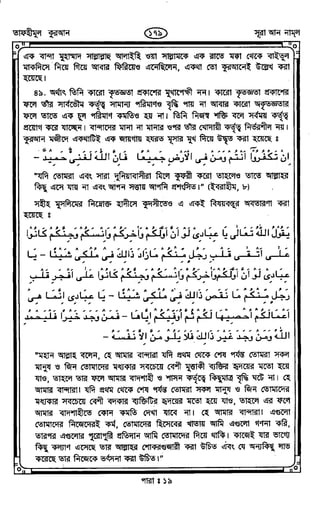 তাফহীমুল কুরআন
১৭৯
সূরা আন নামল
এক বান্দা মুহাম্মাদ সাল্লাল্লাহু আলাইহি ওয়া সাল্লামকে এক রাতে মক্কা থেকে বাইতুল
মাকদিসে নিয়ে গিয়ে আবার ফিরিয়েও এনেছিলেন, একথা তো কুরআনেই উল্লেখ করা
হয়েছে।
৪৯. অর্থাৎ তিনি কারো কৃতজ্ঞতা প্রকাশের মুখাপেক্ষী নন। কারো কৃতজ্ঞতা প্রকাশের
ফলে তাঁর সার্বভৌম কর্তৃত্ব সামান্য পরিমাণও বৃদ্ধি পায় না আবার কারো অকৃতজ্ঞতার
ফলে তাতে এক চুল পরিমাণ কমতিও হয় না। তিনি নিজস্ব শক্তি বলে সর্বময় কর্তৃত্ব
প্রয়োগ করে যাচ্ছেন। বান্দাদের মানা না মানার ওপর তাঁর খোদায়ী কর্তৃত্ব নির্ভরশীল নয়।
কুরআন মজীদে একথাটিই এক জায়গায় হযরত মূসার মুখ দিয়ে উদ্ধৃত করা হয়েছে ঃ
اِنْ تَكْفُرُوْۤا اَنْتُمْ وَمَنْ فِى الْاَرْضِ جَمِيْعًا فَاِنَّ اللّٰهَ لَغَنِىٌّ حَمِيْدٌ -
"যদি তোমরা এবং সারা দুনিয়াবাসীরা মিলে কুফরী করো তাহলেও তাতে আল্লাহর
কিছু এসে যায় না এবং আপন সত্তায় আপনি প্রশংসিত।" (ইবরাহীম, ৮)
সহীহ মুসলিমের নিম্নোক্ত হাদীসে কুদসীতেও এ একই বিষয়বস্তুর অবতারণা করা
হয়েছে ঃ
يَقُوْلُ اللّٰهُ تَعَالٰى يَا عِبَادِىْ لَوْ اَنَّ اَوَّلَكُمْ وَاٰخِرَكُمْ وَاِنْسَكُمْ وَجِنَّكُمْ كَانُوْا
عَلٰى اَتْقٰى قَلْبِ رَجُلٍ مِّنْكُمْ مَازَادَ ذٰلِكَ فِىْ مُلْكِىْ شَيْئًا - يَا
عِبَادِىْ لَوْ اَنَّ اَوَّلَكُمْ وَاٰخِرَكُمْ وَاِنْسَكُمْ وَجِنَّكُمْ كَانُوْا عَلٰى اَفْجَرِ قَلْبِ
رَجُلٍ مِّنْكُمْ مَا نَقَصَ ذٰلِكَ فِىْ مُلْكِىْ شَيْئًا - يَا عِبَادِىْ اِنَّمَا هِىَ
اَعْمَالُكُمْ اُحْصِيْهَا لَكُمْ ثُمَّ اُوَفِّيْكُمْ اِيَّاهَا - فَمَنْ وَجَدَ خَيْرًا فَلْيَحْمَدِ
اللّٰهَ وَمَنْ وَجَدَ غَيْرَ ذٰلِكَ فَلَا يَلُوْمَنَّ اِلَّا نَفْسَهٗ -
"মহান আল্লাহ বলেন, হে আমার বান্দারা যদি প্রথম থেকে শেষ পর্যন্ত তোমরা সকল
মানুষ ও জিন তোমাদের মধ্যকার সবচেয়ে বেশী মুত্তাকী ব্যক্তির হৃদয়ের মতো হয়ে
যাও, তাহলে তার ফলে আমার বাদশাহী ও শাসন কর্তৃত্বে কিছুমাত্র বৃদ্ধি ঘটে না। হে
আমার বান্দারা। যদি প্রথম থেকে শেষ পর্যন্ত তোমরা সকল মানুষ ও জিন তোমাদের
মধ্যকার সবচেয়ে বেশী বদকার ব্যক্তিটির হৃদয়ের মতো হয়ে যাও, তাহলে এর ফলে
আমার বাদশাহীতে কোন কমতি দেখা যাবে না। হে আমার বান্দারা। এগুলো
তোমাদের নিজেদেরই কর্ম, তোমাদের হিসেবের খাতায় আমি এগুলো গণনা করি,
তারপর এগুলোর পুরোপুরি প্রতিদান আমি তোমাদের দিয়ে থাকি। কাজেই যার ভাগ্যে
কিছু কল্যাণ এসেছে তার আল্লাহর শোকরগুজারী করা উচিত এবং যে অন্যকিছু লাভ
করেছে তার নিজেকে ভর্ৎসনা করা উচিত।"
পারা ঃ ১৯